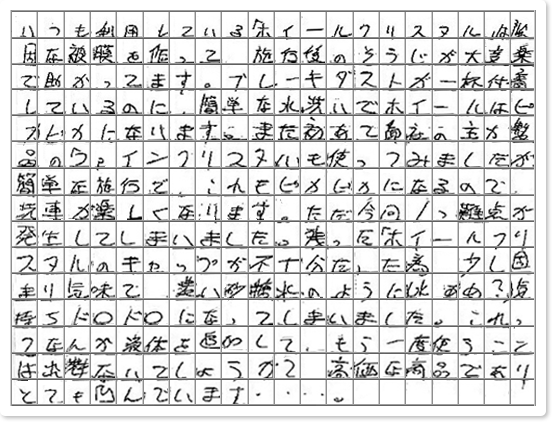 いつも利用しているホイールクリスタルは強
固な被膜を作って、施行後のそうじが大変楽
で助かってます。ブレーキダストが一杯付着
しているのに、簡単な水洗いでホイールはピ
カピカになります。また初めて御社の主力製
品のウァインクリスタルも使ってみましたが
簡単な施行で、これもピカピカになるので、
洗車が楽しくなります。ただ今回1つ難点が
発生してしまいました。残ったホイールクリ
スタルのキャップが不十分だった為、少し固
まり気味で、濃い砂糖水のように(水あめ?)気
持ちドロドロになってしまいました。これっ
てなんか液体を追加して、もう一度使うこと
は出来ないでしょうか?高価な商品であり
とても悩んでいます・・・・。